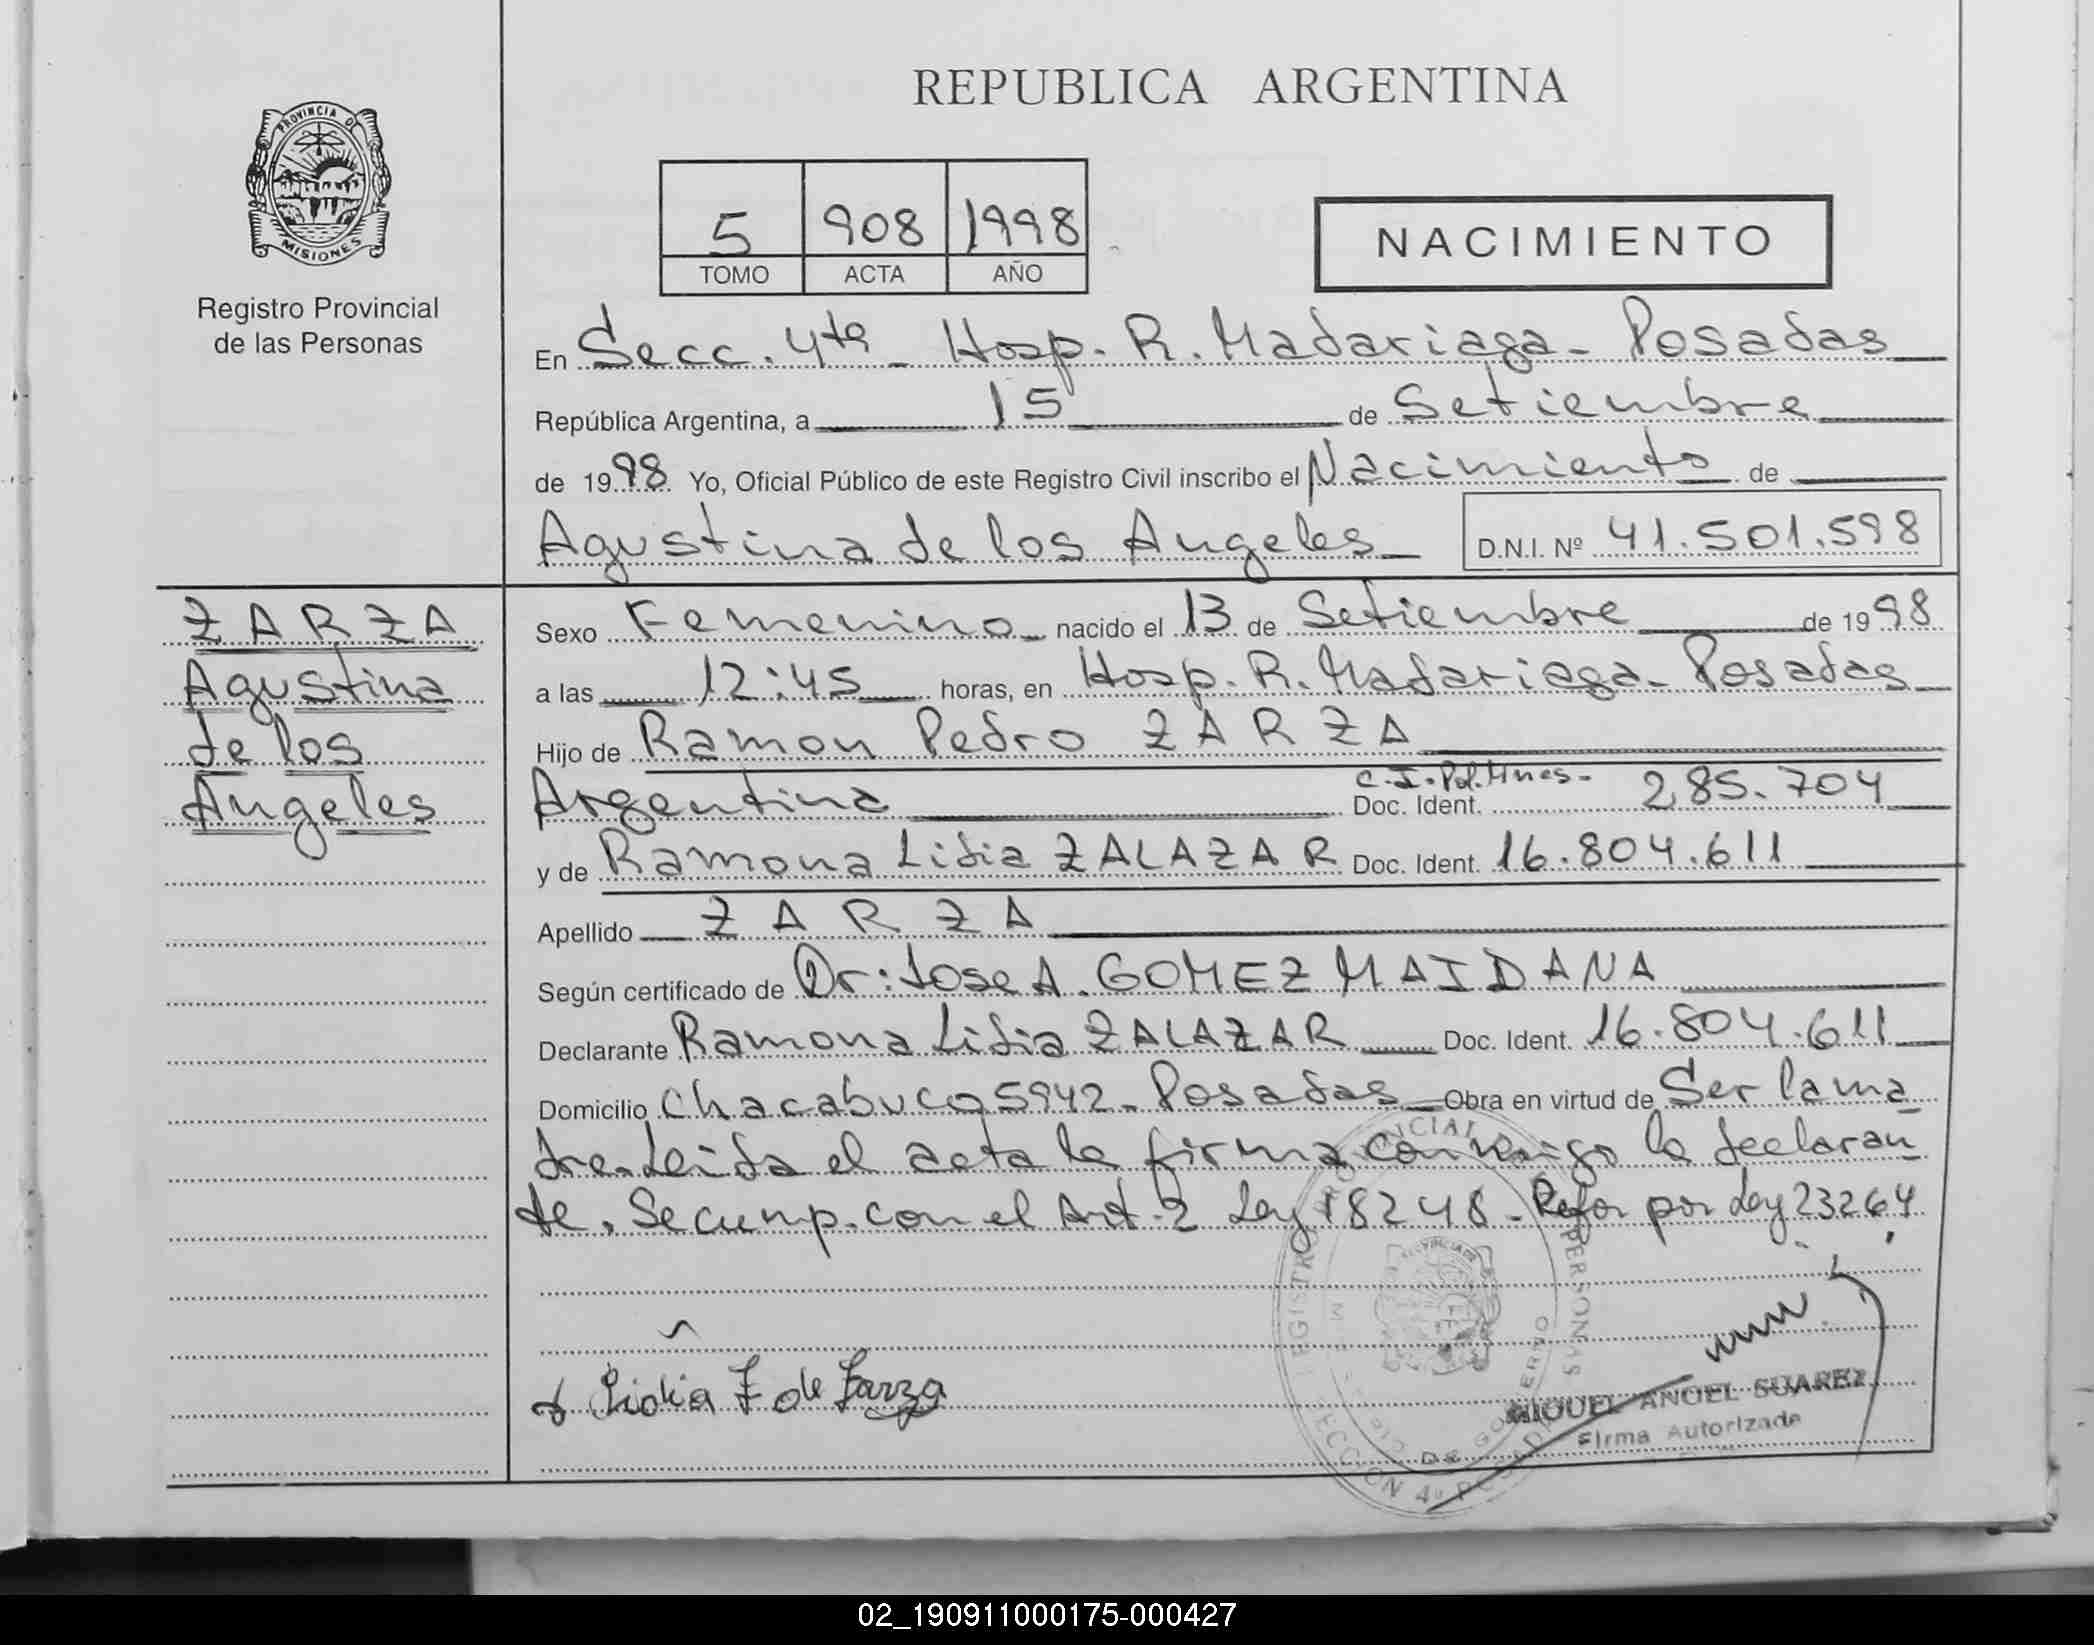 REPUBLICA ARGENTINA
PROVINCIA DE
MISIONES
Registro Provincial
de las Personas
5 908 1998
TOMO ACTA AÑO
NACIMIENTO
En Secc. 4ta - Hosp. R. Madariaga - Posadas
República Argentina, a 15 de Setiembre
de 1998 Yo, Oficial Público de este Registro Civil inscribo el Nacimiento de
Agustina de los Angeles - D.N.I. Nº 41.501.598
ZARZA
Agustina
de los
Angeles
Sexo Femenino - nacido el 13 de Setiembre de 1998
a las 12:45 horas, en Hosp. R. Madariaga - Posadas
Hijo de Ramon Pedro ZARZA
Argentina C.I. Pol. Mnes - Doc. Ident. 285.704
y de Ramona Lidia ZALAZAR Doc. Ident. 16.804.611
Apellido ZARZA
Según certificado de Dr: Jose A. GOMEZ MAIDANA
Declarante Ramona Lidia ZALAZAR Doc. Ident. 16.804.611
Domicilio Chacabuco 5942 - Posadas - Obra en virtud de Ser la ma
dre. Leida el acta la firma conmigo la declaran
te. Se cump. con el Art. 2 Ley 18248 - Refor por Ley 23264
Lidia Z de Zarza
MIGUEL ANGEL SUAREZ
Firma Autorizada
REGISTRO PROVINCIAL PERSONAS
DE GOBIERNO
SECCION 4ª POSADAS
02_190911000175-000427